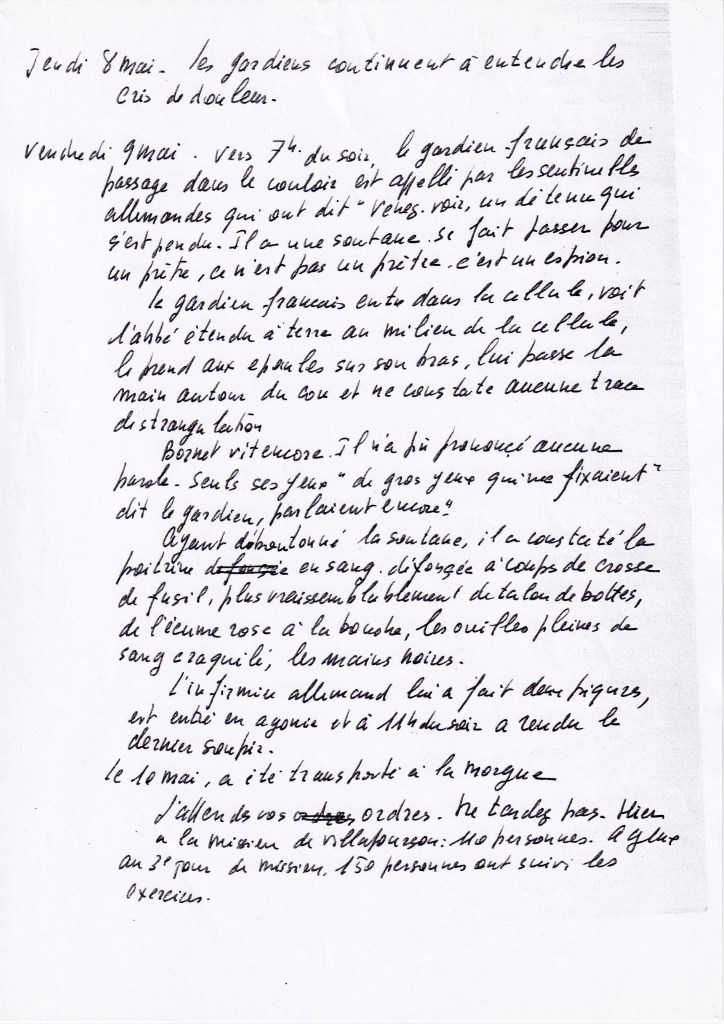 Jeudi 8 mai. les gardiens continuent à entendre les
cris de douleur.
vendredi 9 mai. vers 7h. du soir, le gardien français de
passage dans le couloir est appellé par les sentinelles
allemandes qui ont dit "venez voir, un détenu qui
s'est pendu. Il a une soutane. se fait passer pour
un prêtre, ce n'est pas un prêtre. c'est un espion.
le gardien français entre dans la cellule, voit
l'abbé étendu à terre au milieu de la cellule,
le prend aux epaules sur son bras, lui passe la
main autour du cou et ne constate aucune trace
de strangulation
Bornet vit encore. Il n'a pu prononcé aucune
parole. seuls ses yeux "de gros yeux qui me fixaient"
dit le gardien, parlaient encore".
Ayant déboutonné la soutane, il a constaté la
poitrine en sang. défoncée à coups de crosse
de fusil, plus vraissemblablement de talon de bottes,
de l'écume rose à la bouche, les oreilles pleines de
sang craquilé, les mains noires.
L'infirmier allemand lui a fait deux piqures,
est entré en agonie et à 11h du soir a rendu le
dernier soupir.
le 10 mai, a été transporté à la morgue
J'attends vos ordres. Ne tardez pas. Hier
a la mission de villapourçon: 110 personnes. A Glux
au 3e jour de mission, 150 personnes ont suivi les
exercices.